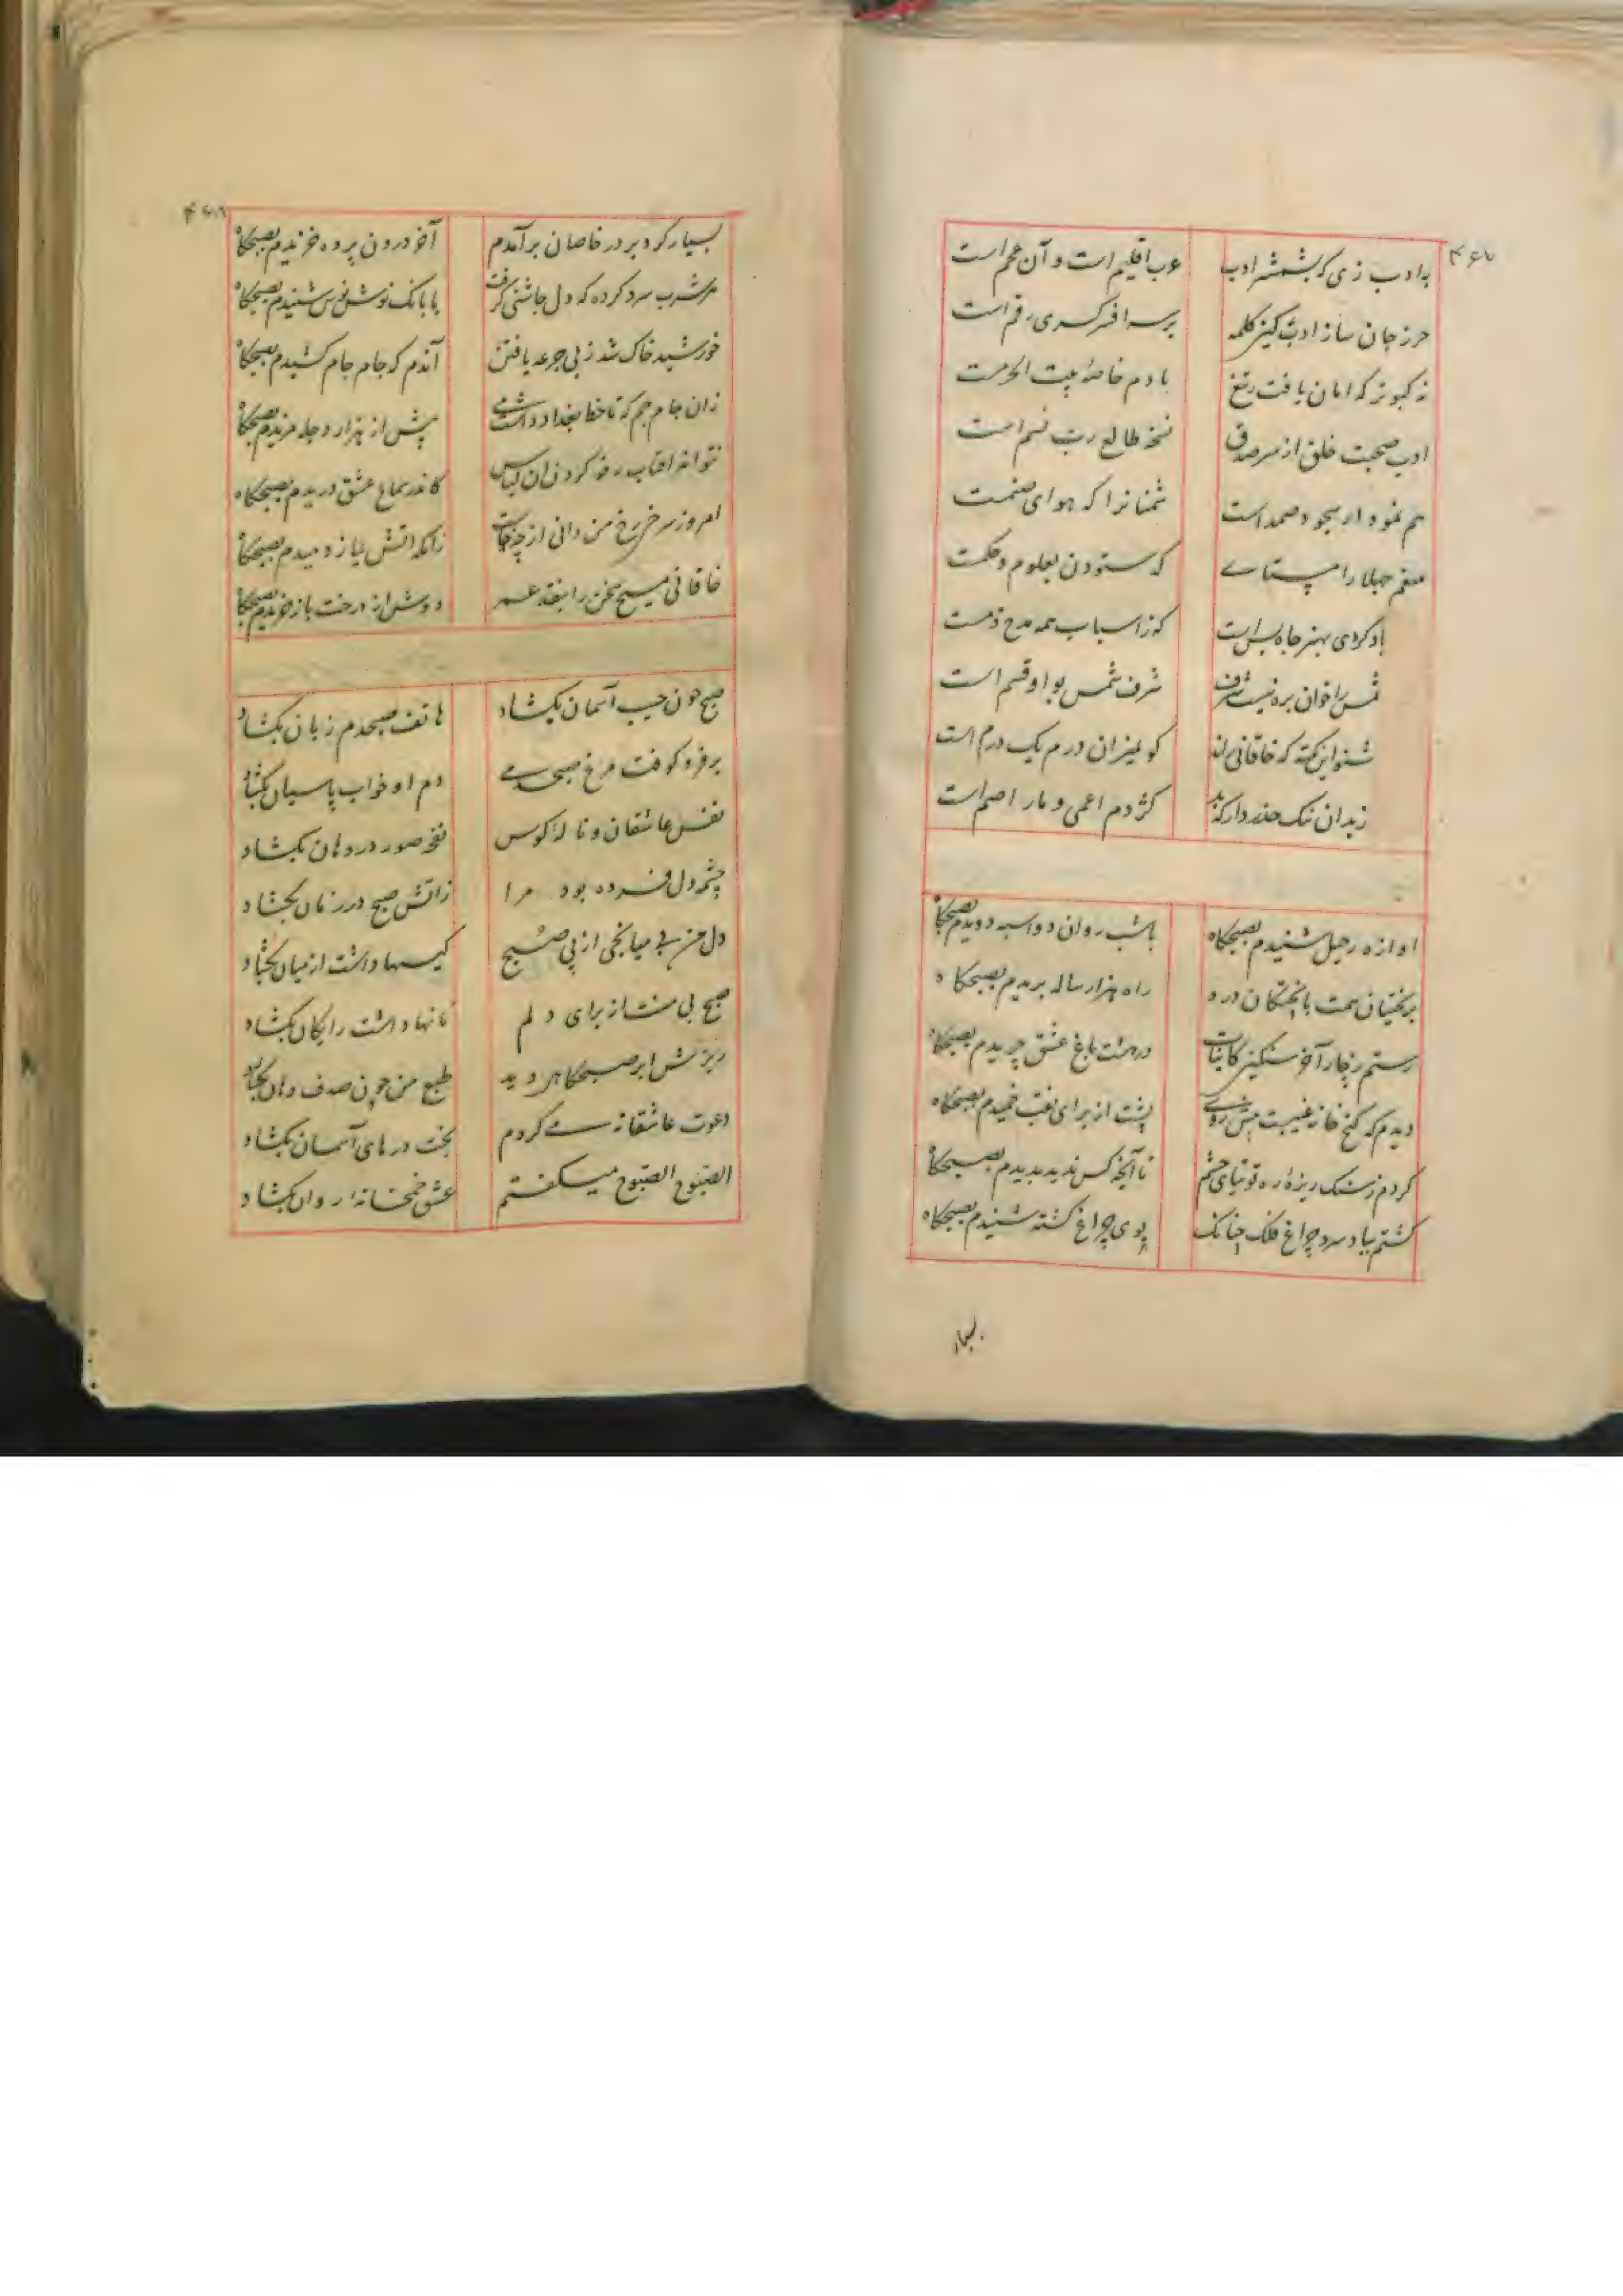 ۴۶۷
به ادب زی که بشمشیر ادب
عرب اقلیم است و آن عجم است
حرز جان ساز ادب کین کلمه
بر سر افسر کسری رقم است
نه کبوتر که امان یافت ز تیغ
با دم خاصهٔ بیت الحرمست
ادب صحبت خلق از سر صدق
نسخه طالع رب نسم است
هم نمودار سجود صمد است
شمنانرا که هوای صنمست
جهلا را مپسنای
که ستودن بعلوم و حکمت
باد کردی بهنر جاه بس است
که ز اسباب همه مدح ذمست
شمس را خوان بره نیست شرف
شرف شمس بواو قسم است
شنو این نکته که خاقانی راند
کو بمیزان درم یک درم است
ز بدان نیک حذر دار که بد
کژدم اعمی و مار اصم است
اوازه رحیل شنیدم بصبحگاه
باشب روان دواسبه دویدم بصبحگاه
بر بختیان همت با پختگان درد
راه هزار ساله بریدم بصبحگاه
رستم ز چار آخر سنگین کاینات
در هشت باغ عشق چریدم بصبحگاه
دیدم که گنج خانه غیبست پیش روی
پشت از برای نقب خمیدم بصبحگاه
کردم ز سنک ریزهٔ ره توتیای چشم
تا آنچه کس ندید بدیدم بصبحگاه
کشتم بباد سرد چراغ فلک چنانک
بوی چراغ کشته شنیدم بصبحگاه
بسیار
۴۶۸
بسیار گرد بر در خاصان برآمدم
آخر درون پرده خزیدم بصبحگاه
مشرب سرد کرده که دل چاشنی گرفت
با بانک نوش نوش شنیدم بصبحگاه
خورشید خاک شد ز پی جرعه یافتن
آندم که جام جام کشیدم بصبحگاه
زان جام جم که تا خط بغداد داشتمی
پیش از هزار دجله مزیدم بصبحگاه
نتواند افتاب رفو کردن ان لباس
کاندر سماع عشق دریدم بصبحگاه
امروز سرخ رخ من دانی از چه خاست
زانکه اتش نیاز دمیدم بصبحگاه
خاقانی مسیح سخن را بنقد عمر
دوش از درخت باز خریدم بصبحگاه
صبح چون جیب آسمان بگشاد
هاتف صبحدم زبان بگشاد
بر فرو کوفت مرغ صبحدمی
دم او خواب پاسبان بگشاد
نفس عاشقان و ناله کوس
نفخ صور در دهان بگشاد
چشمه دل فسرده بود مرا
زاتش صبح در زمان بگشاد
دل من بی میانجی از پی صبح
کیسها داشت از میان بگشاد
صبح بی منت از برای دلم
نافها داشت رایگان بگشاد
ریزش ابر صبحگاهی دید
طبع من چون صدف دهان بگشاد
دعوت عاشقانه می کردم
بخت درهای آسمان بگشاد
الصبوح الصبوح میگفتم
عشق خمخانه روان بگشاد